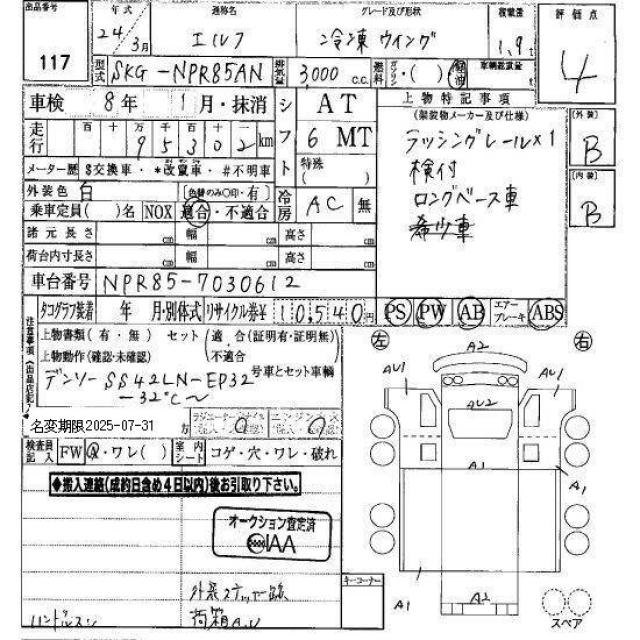 出品番号
117
年式
24年3月
通称名
エルフ
グレード及び形状
冷凍ウイング
積載量
1.9t
評価点
4
型式 SKG-NPR85AN 排気量 3,000 c.c. 燃料 ガソリン・( ) 軽油 車輌総重量 t
車検 8年 1月・抹消
シフト AT
6 MT
特殊 ( )
走行 百 十 万 千 百 十
9 5 3 0 2 km
メーター歴 $交換車・*改ざん車・#不明車
外装色 白 (色替のみ○印・有)
冷房 AC 無
乗車定員( )名 NOX 適合・不適合
諸元長さ cm 幅 cm 高さ cm
荷台内寸長さ cm 幅 cm 高さ cm
車台番号 NPR85-7030612
上物特記事項
(架装物メーカー及び仕様)
ラッシングレール×1
検付
ロングベース車
希少車
[外装]
B
[内装]
B
タコグラフ装着 年 月・別体式 リサイクル券¥ 10,540円 PS PW AB エアーブレーキ ABS
注意事項(出品店記入)
上物書類(有・無) セット(適合(証明有・証明無)
上物動作(確認・未確認) 不適合
デンソー SS42LN-EP32 号車とセット車輌
-32℃~
名変期限2025-07-31
検査員記入 FW ・ワレ( ) 室内シート コゲ・穴・ワレ・破れ
◆搬入連絡(成約日含め4日以内)後お引取り下さい。
オークション査定済
IAA
外装ステッカー跡
荷箱A,U
ハンドルスレ
キーコーナー
左
右
A2
AU1
AU1
AU2
A1
A1
A1
A2
スペア